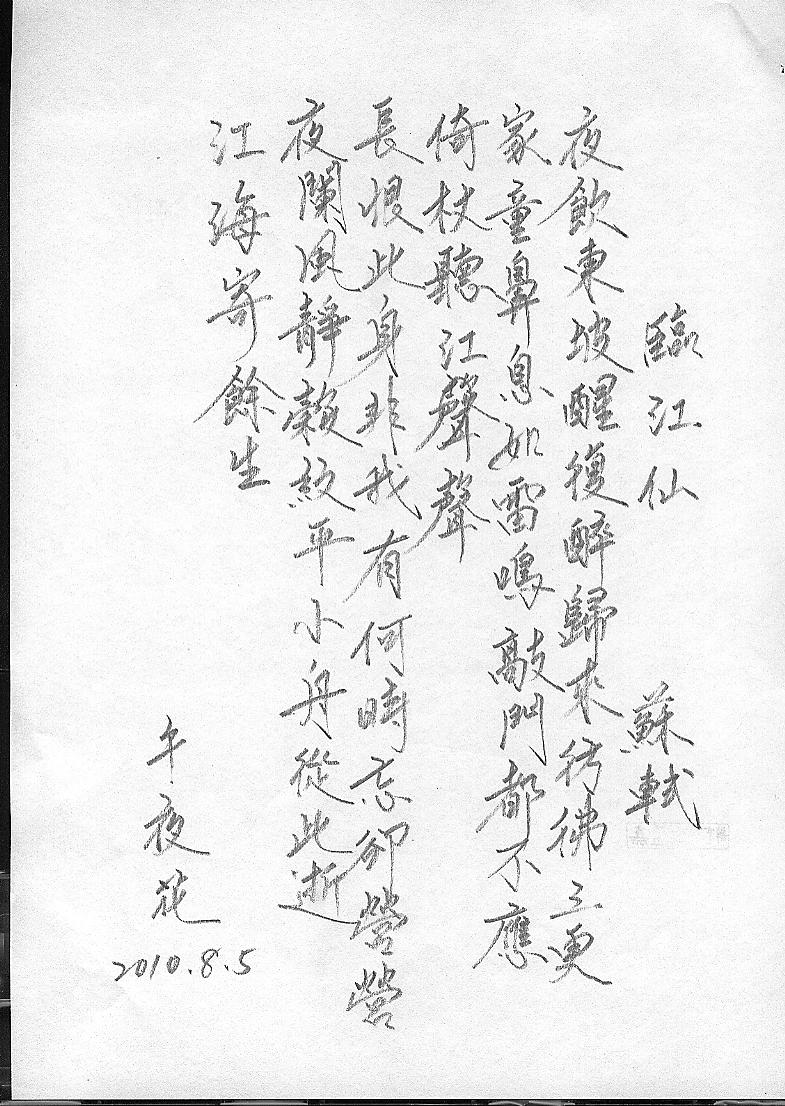 臨江仙 蘇軾
夜飲東坡醒復醉歸來彷彿三更
家童鼻息如雷鳴敲門都不應
倚杖聽江聲聲
長恨此身非我有何時忘卻營營
夜闌風靜縠紋平小舟從此逝
江海寄餘生
午夜花
2010.8.5